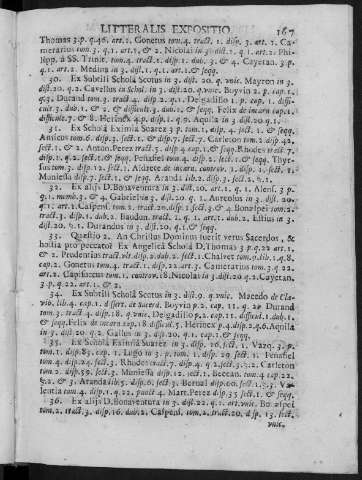 LITTERALIS EXPOSITIO 167
Thomas 3. p. q. 46. art. 2. Gonetus tom. 4. tract. 1. disp. 3. art. 2. Ca-
merarius tom. 3. q. 1. art. 1. & 2. Nicolai in 3. dist. 1. q. 1. art. 2. Phi-
lipp. à SS. Trinit. tom. 4. tract. 1. disp. 1. dub. 3. & 4. Cayetan. 3. p.
q. 1. art. 2. Medina in 3. dist. 1. q. 1. art. & seqq.
30. Ex Subtili Scholâ Scotus in 3. dist. 20. q. vnic. Mayron in 3.
dist. 20. q. 2. Cavellus in Schol. in 3. dist. 20. q. vnic. Boyvin 2. p. cap. 1.
q. 3. Durand tom. 3. tract. 4. disp. 2. q. 1. Delgadillo 1. p. cap. 1. diffi-
cult. 3. dub. 1. & 2. & difficult. 4. dub. 2. & seqq. Felix de incarn cap. 1.
difficult. 7. & 8. Herinex 4. p. disp. 1. q. 9. Aquila in 3. dist. 20. q. 1.
31. Ex Scholâ Eximia Suarez 3. p. tom. 1. disp. 4. sect. 1. & seqq.
Amicus tom. 6. disp. 5. sect. 1. & disp. 7. sect. 7. Carleton tom. 2. disp. 42.
sect. 1. & 2. Anton. Perez tract. 3. disp. 4. cap. 1. & seqq. Rhodes tract. 7.
disp. 1. q. 2. sect. 1. & seqq. Peñafiel tom. 4. disp. 4. sect. 1. & seqq. Thyr-
sus tom. 3. disp. 12. sect. 1. Aldrete de incarn. controv. 1. disp. 10. sect. 1.
Muniessa disp. 7. sect. 1. & seqq. Aranda lib. 2. disp. 3. sect. 2. §. 1.
32. Ex alijs D. Bonaventura in 3. dist. 20. art. 1. q. 1. Alens. 3. p.
q. 1. memb. 3. & 4. Gabriel in 3. dist. 20. q. 1. Aureolus in 3. dist. 20.
q. 1. art. 1. Caspens. tom. 2. tract. 20. disp. 1. sect. 3. & 4. Bonæspei tom. 2.
tract. 3. disp. 1. dub. 2. Baudun. tract. 2. q. 1. art. 1. dub. 2. Estius in 3.
dist. 20. §. 1. Durandus in 3. dist. 20. q. 1. & seqq.
33. Quæstio 2. An Christus Dominus fuerit verus Sacerdos, &
hostia pro peccato? Ex Angelicâ Scholâ D. Thomas 3. p. q. 22. art. 1.
& 2. Prudentius tract. vlt. disp. 2. dub. 2. sect. 1. Chalvet tom. 9. lib. 1. q. 8.
cap. 2. Gonetus tom. 4. tract. 1. disp. 22. art. 3. Camerarius tom. 3. q. 22.
art. 2. Capifuccus tom. 1. controv. 18. Nicolai in 3. dist. 20. q. 2. Cayetan.
3. p. q. 22. art. 1. & 2.
34. Ex Subtili Scholâ Scotus in 3. dist. 9. q. vnic. Macedo de Cla-
vib. lib. 4. cap. 1. & disert. de sacerd. Boyvin p. 2. cap. 11. q. 2. Durand
tom. 3. tract. 4. disp. 18. q. vnic. Delgadillo p. 2. cap. 11. difficul. 1. dub. 1.
& seqq. Felix de incarn. cap. 18. difficul. 5. Herincx p. 4. disp. 2. q. 6. Aquilla
in 3. dist. 20. q. 2. Gallus in 3. dist. 20. q. 1. cap. 1. & seqq.
35. Ex Scholâ Eximiâ Suarez in 3. disp. 26. sect. 1. Vazq. 3. p.
tom. 1. disp. 83. cap. 1. Lugo in 3. p. tom. 1. disp. 29. sect. 1. Peñafiel
tom. 4. disp. 24. sect. 1. Rhodes tract. 7. disp. 4. q. 2. sect. 3. §. 2. Carleton
tom. 2. disp. 59. sect. 3. Muniessa disp. 17. sect. 1. Beccan. tom. 4. cap. 22.
§. 2. & 3. Aranda lib. 5. disp. 6. sect. 3. Bernal disp. 60. sect. 1. §. 3. Va-
lentia tom. 4. disp. 1. q. 22. punct. 4. Mart. Perez disp. 35. sect. 1. & seqq.
36. Ex alijs D. Bonaventura in 3. dist. 22. q. 1. art. vnic. Bonæspei
tom. 2. tract. 3. disp. 16. dub. 2. Caspens. tom. 2. tract. 20. disp. 13. sect.
vnic.